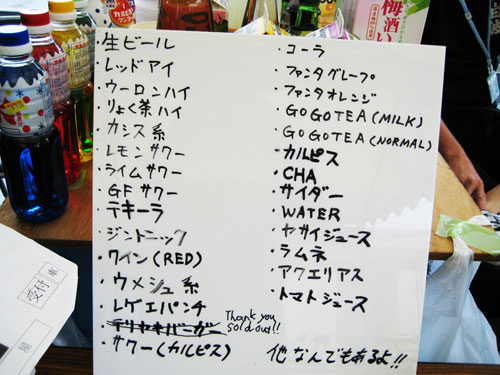 ・生ビール
・レッドアイ
・ウーロンハイ
・りょく茶ハイ
・カシス系
・レモンサワー
・ライムサワー
・GFサワー
・テキーラ
・ジントニック
・ワイン(RED)
・ウメシュ系
・レゲエパンチ
・テリヤキバーガー Thank you sold out!!
・サワー(カルピス)
・コーラ
・ファンタグレープ
・ファンタオレンジ
・GOGOTEA(MILK)
・GOGOTEA(NORMAL)
・カルピス
・CHA
・サイダー
・WATER
・ヤサイジュース
・ラムネ
・アクエリアス
・トマトジュース
他なんでもあるよ!!
梅酒い
受付